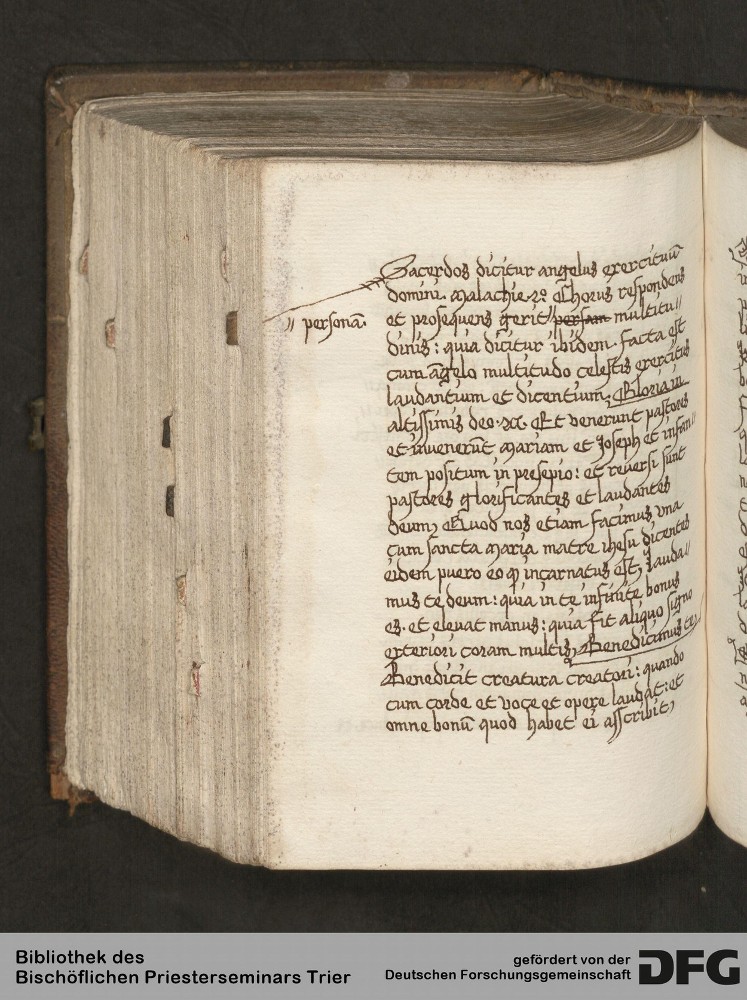 Sacerdos dicitur angelus exercituū
domini. Malachie. 2º Chorus respondens
et prosequens gerit persam multitu//
// personā.
dinis: quia dicitur ibidem. facta est
cum āgelo multitudo celestis exercitus
laudantium et dicentium, Gloria in
altissimis deo. Et venerunt pastores
et invenerūt Mariam et Joseph et infan//
tem positum in presepio: et reversi sunt
pastores glorificantes et laudantes
deum, Quod nos etiam facimus, vna
cum sancta Maria matre ihesu dicentes
eidem puero eo incarnatus est, lauda//
mus te deum: quia in te infinite bonus
es. et elevat manus: quia fit aliquo signo
exteriori coram multis, Benedicimus te,
Benedicit creatura creatori: quando
cum corde et voce et opere laudat: et
omne bonū quod habet ei asscribit,
Bibliothek des
Bischöflichen Priesterseminars Trier
gefördert von der
Deutschen Forschungsgemeinschaft
DFG